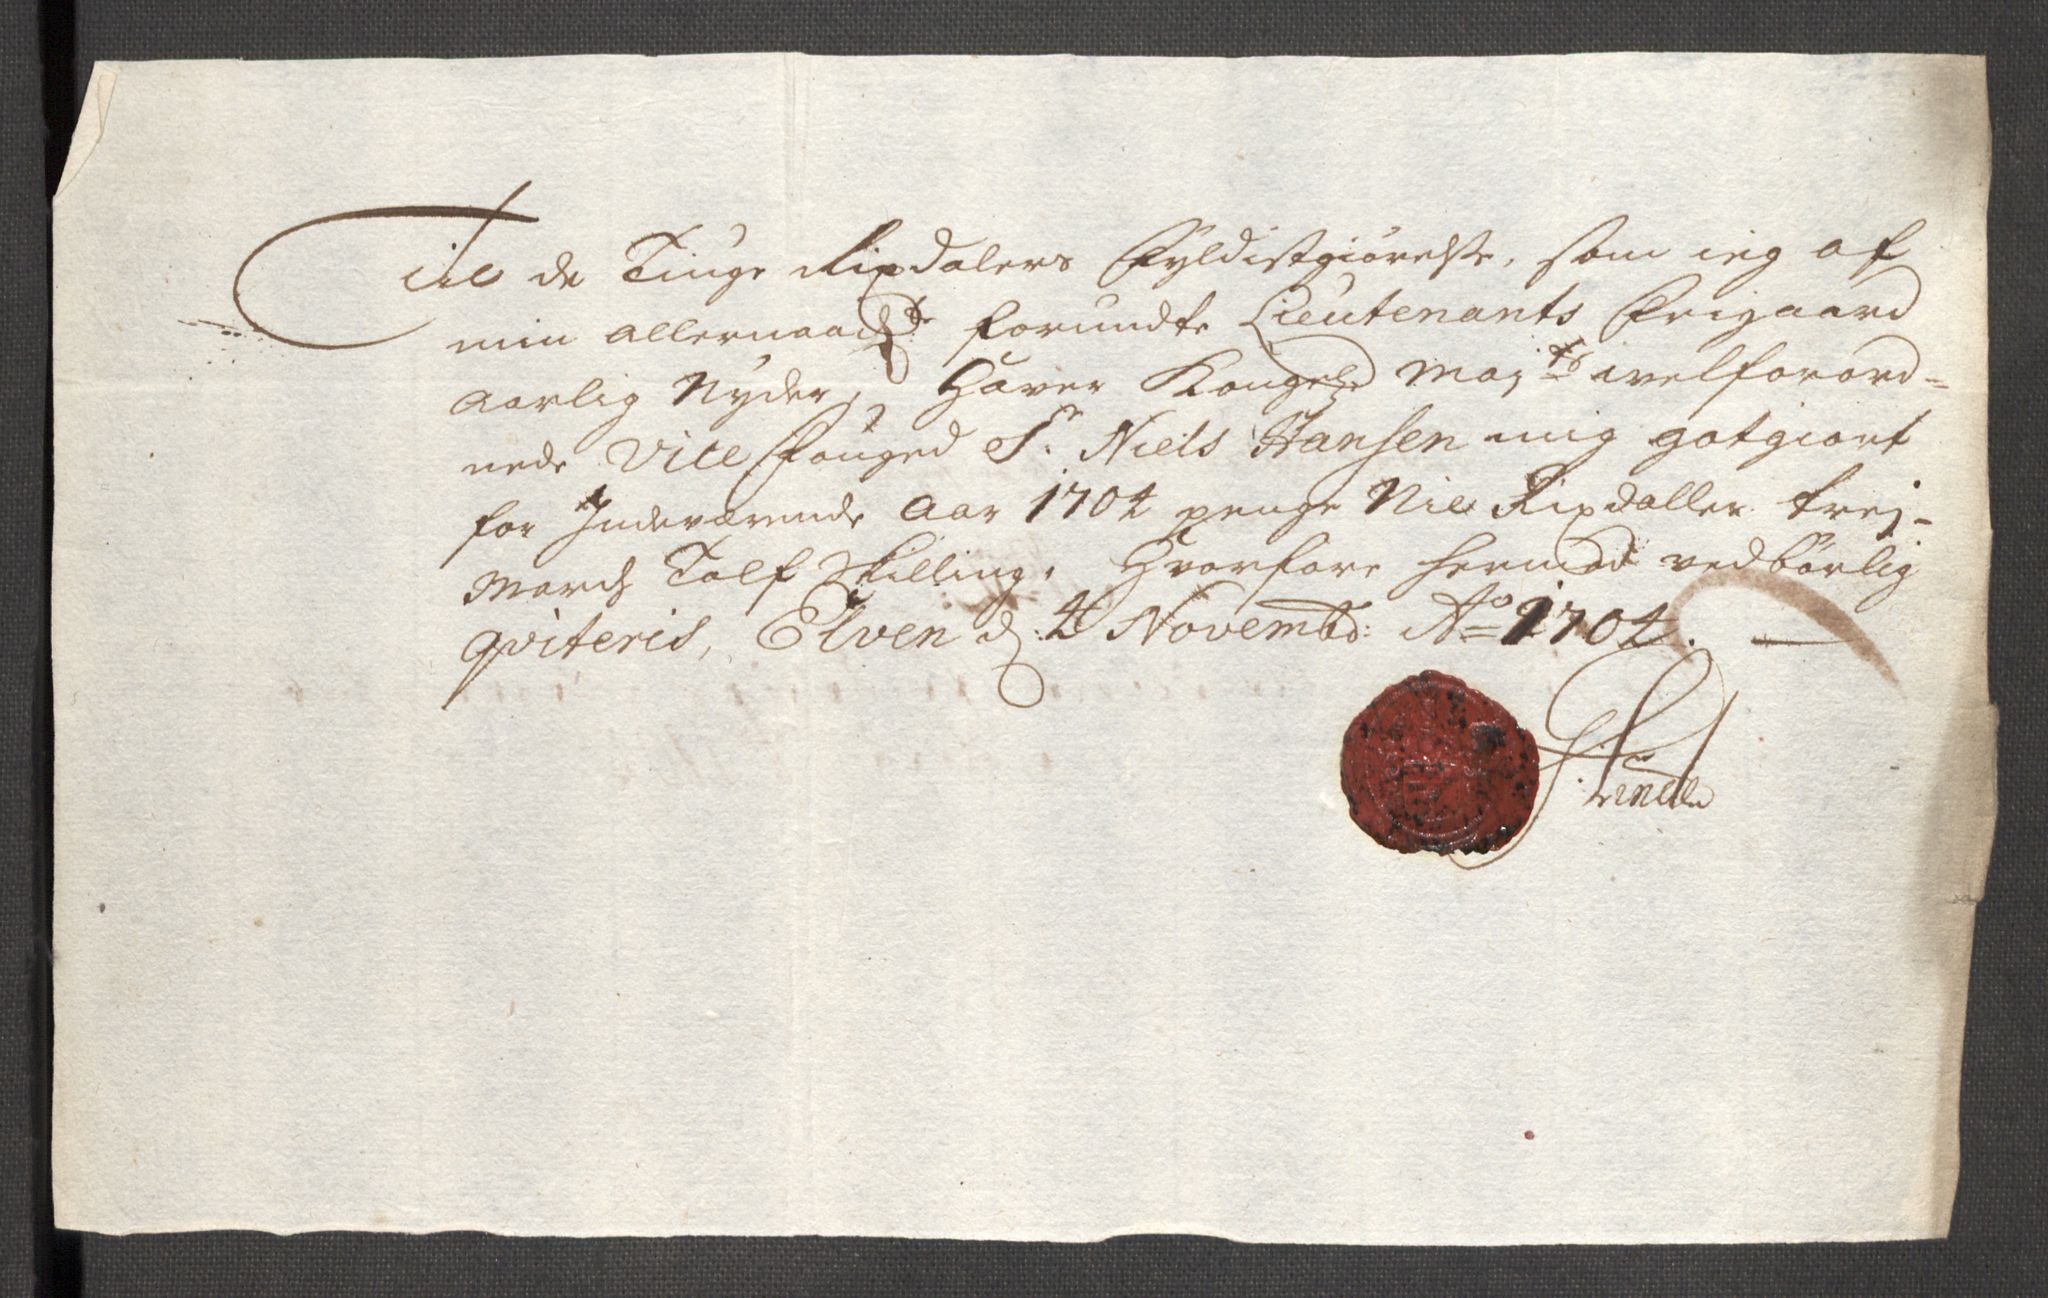 Till de Tiuge Rixdalers Fyldistgiørelsse, som ieg af
min allernaadgste forundte Lieutenants Frigaard
aarlig Nyder, Haver Kongel: Maj:ts welforord=
nede Vice Fouged Sr. Niels Hansen mig gotgiort
for Indeværende Aar 1704 penge Nie Rixdaller trej=
March Tolf Skilling, Hvorfore hermed vedbørlig
qviteris, Elven d. 4 Novembr: Ao 1704.